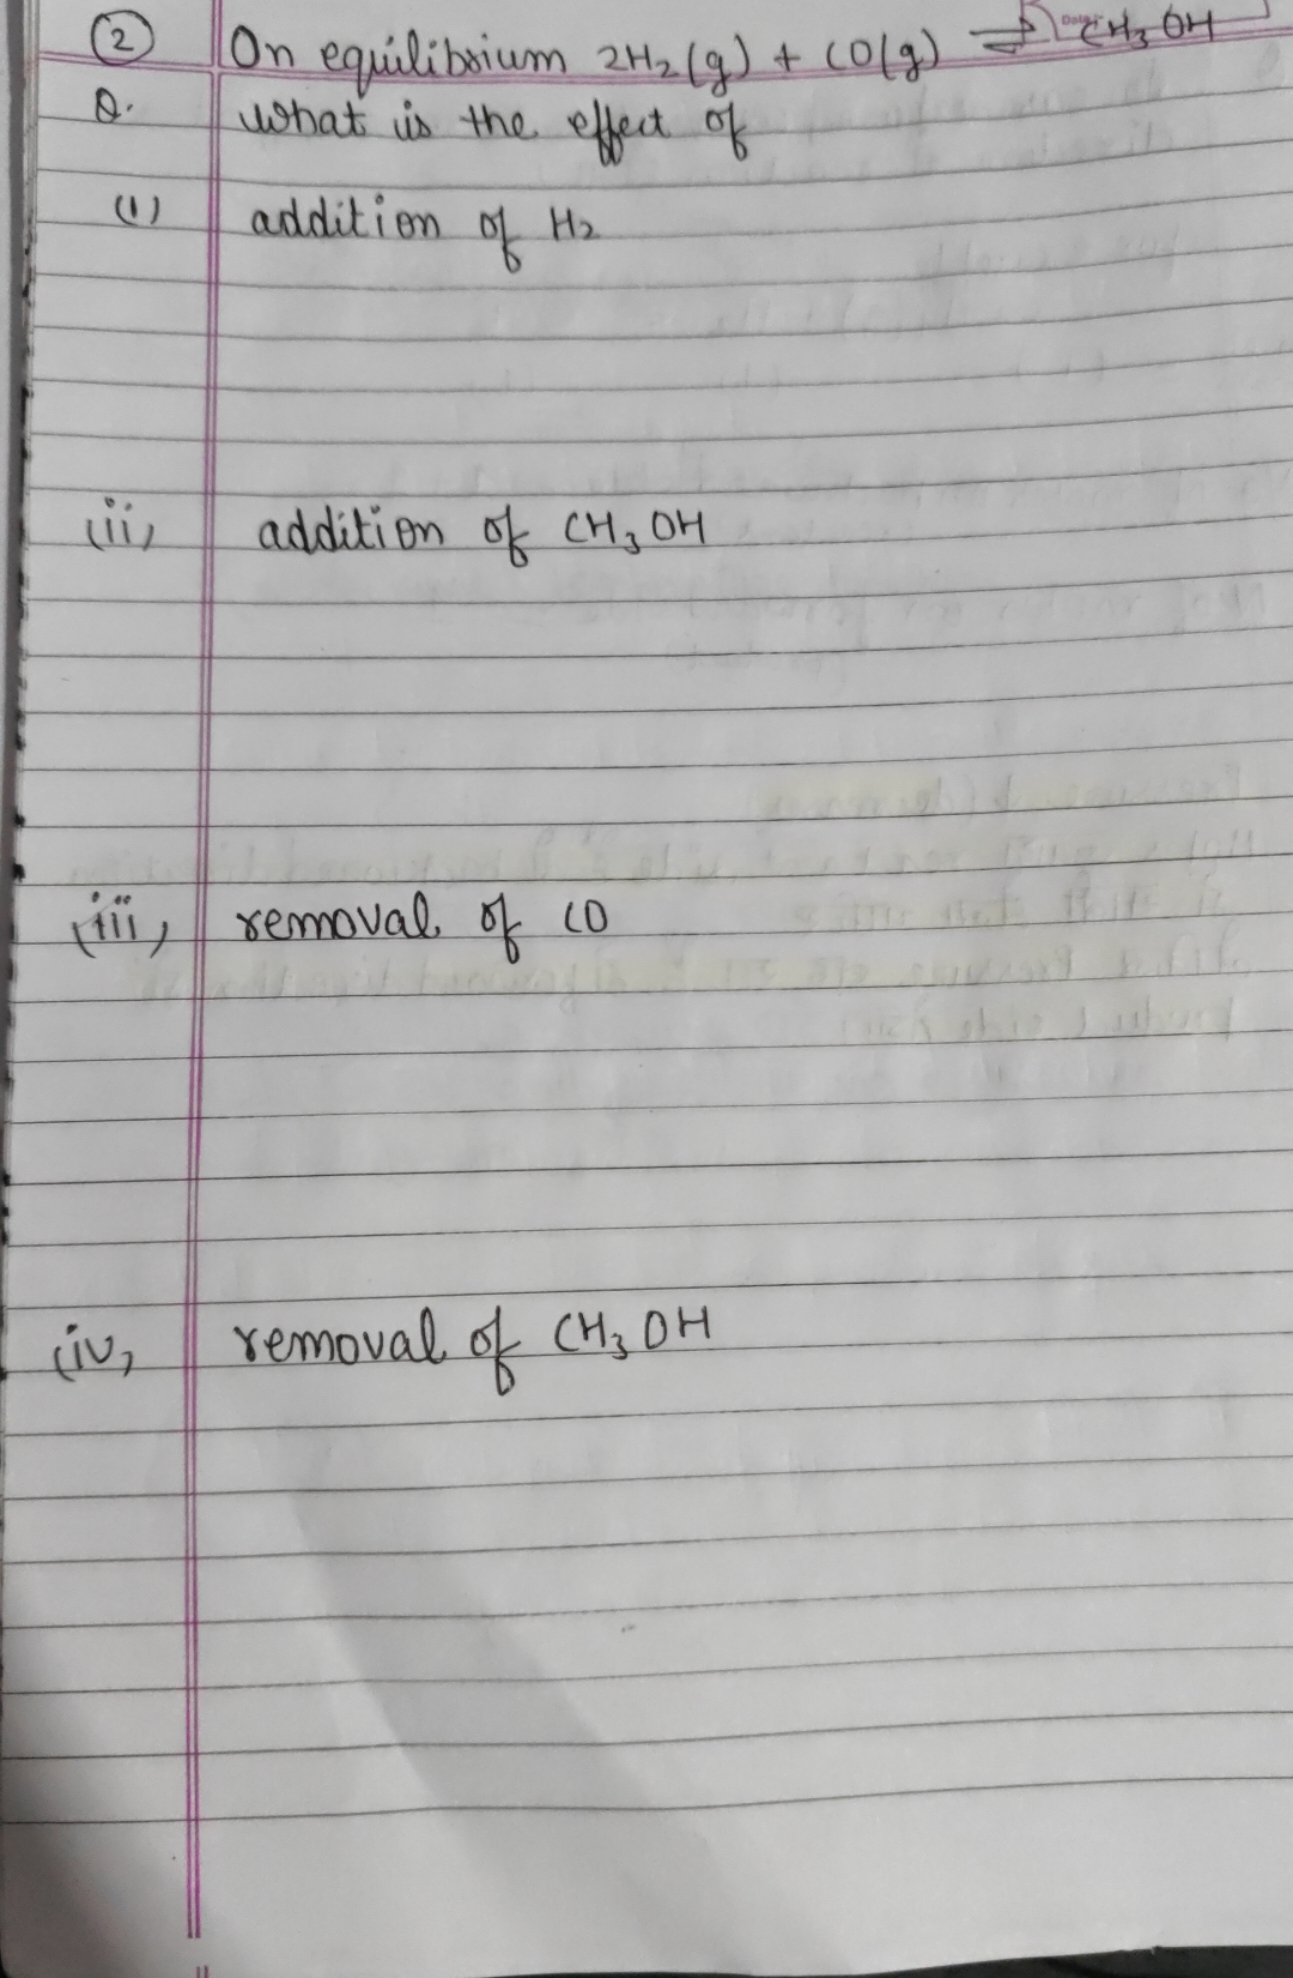 ② On equilibrium 2H₂(g) + CO(g) ⇌ CH₃OH
Q. What is the effect of
(i) addition of H₂
(ii) addition of CH₃OH
(iii) removal of CO
(iv) removal of CH₃OH